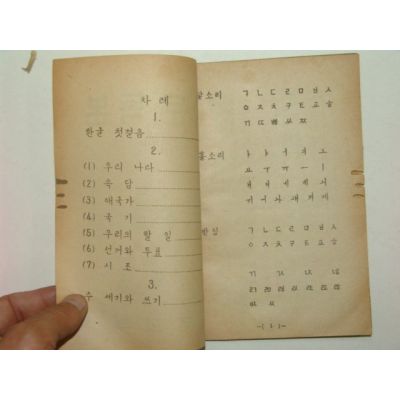 차 례
1.
한글 첫걸음
2.
(1) 우리 나라
(2) 속 담
(3) 애국가
(4) 국 기
(5) 우리의 할 일
(6) 선거와 투표
(7) 시 조
3.
수 세기와 쓰기
닿소리 ㄱ ㄴ ㄷ ㄹ ㅁ ㅂ ㅅ
ㅇ ㅈ ㅊ ㅋ ㅌ ㅍ ㅎ
ㄲ ㄸ ㅃ ㅆ ㅉ
홀소리 ㅏ ㅑ ㅓ ㅕ ㅗ
ㅛ ㅜ ㅠ ㅡ ㅣ
받침 ㄱ ㄴ ㄷ ㄹ ㅁ ㅂ ㅅ
ㅇ ㅈ ㅊ ㅋ ㅌ ㅍ ㅎ
ㄲ
—( 1 )—